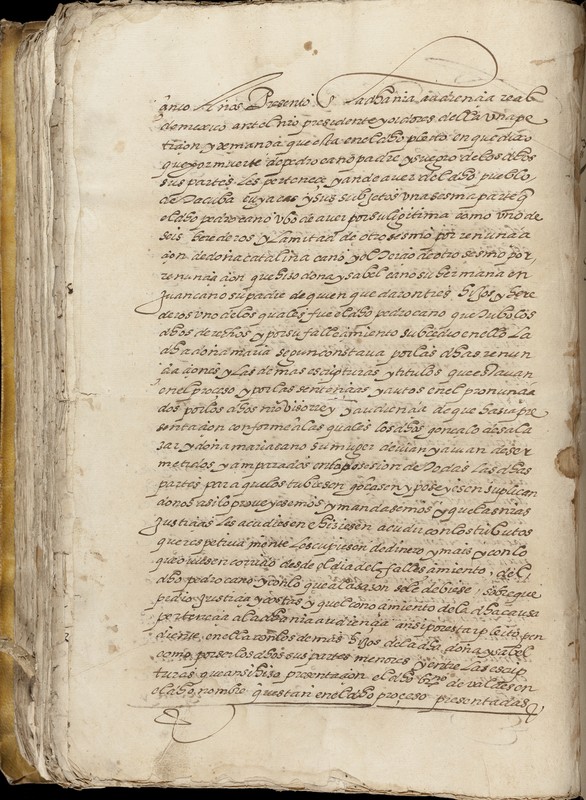 año Años Presento En la dha nra audiencia real
de mexico ante el nro presidente y oidores della una pe
ticion y demanda que esta en el dho pleito en que dixo
que por muerte de pedro cano padre y suegro de los dhos
sus partes les pertenece y an de aver del dho pueblo
de Tacuba tuyacac y sus subjetos una sesma parte q
el dho pedro cano ubo de aver por su ligitima como uno de
seis herederos y la mitad de otro sesmo por renuncia
cion de doña catalina cano y el tercio de otro sesmo por
renunciacion que hiso dona ysabel cano su hermana en
Juan cano su padre de quien quedaron tres hijos y here
deros uno de los quales fue el dho pedro cano que tubo los
dhos derechos y por su fallecimiento subcedio en ello la
dha doña maria segun constava por las dhas renun
ciaciones y las demas escripturas y titulos que estavan
en el proceso y por las sentencias y autos en el pronuncia
dos por los dhos nro visorrey y audiencia de que hasia pre
sentacion conforme a las quales los dhos gonçalo de sala
zar y doña maria cano su muger devian y avian de ser
metidos y amparados en la posesion de todas las dhas
partes para que los tubiesen gocasen y poseyesen suplican
donos asi lo proveyesemos y mandasemos y que las nras
Justicias les acudiesen e hisiesen acudir con los tributos
que respetivamente les cupiesen de dinero y mais y con lo
que oviesen corrido desde el dia del fallecimiento del
dho pedro cano y con lo que a la sason se le debiese sobre que
pidio Justicia y costas y que el conocimiento de la dha causa
pertenecia a la dha nra audiencia ansi por estar pleito pen
diente en ella con los demas hijos de la dha doña ysabel
como por ser los dhos sus partes menores y entre las escrip
turas que ansi hiso presentacion el dho de valdes en
el dho nombre questan en el dho proceso presentadas